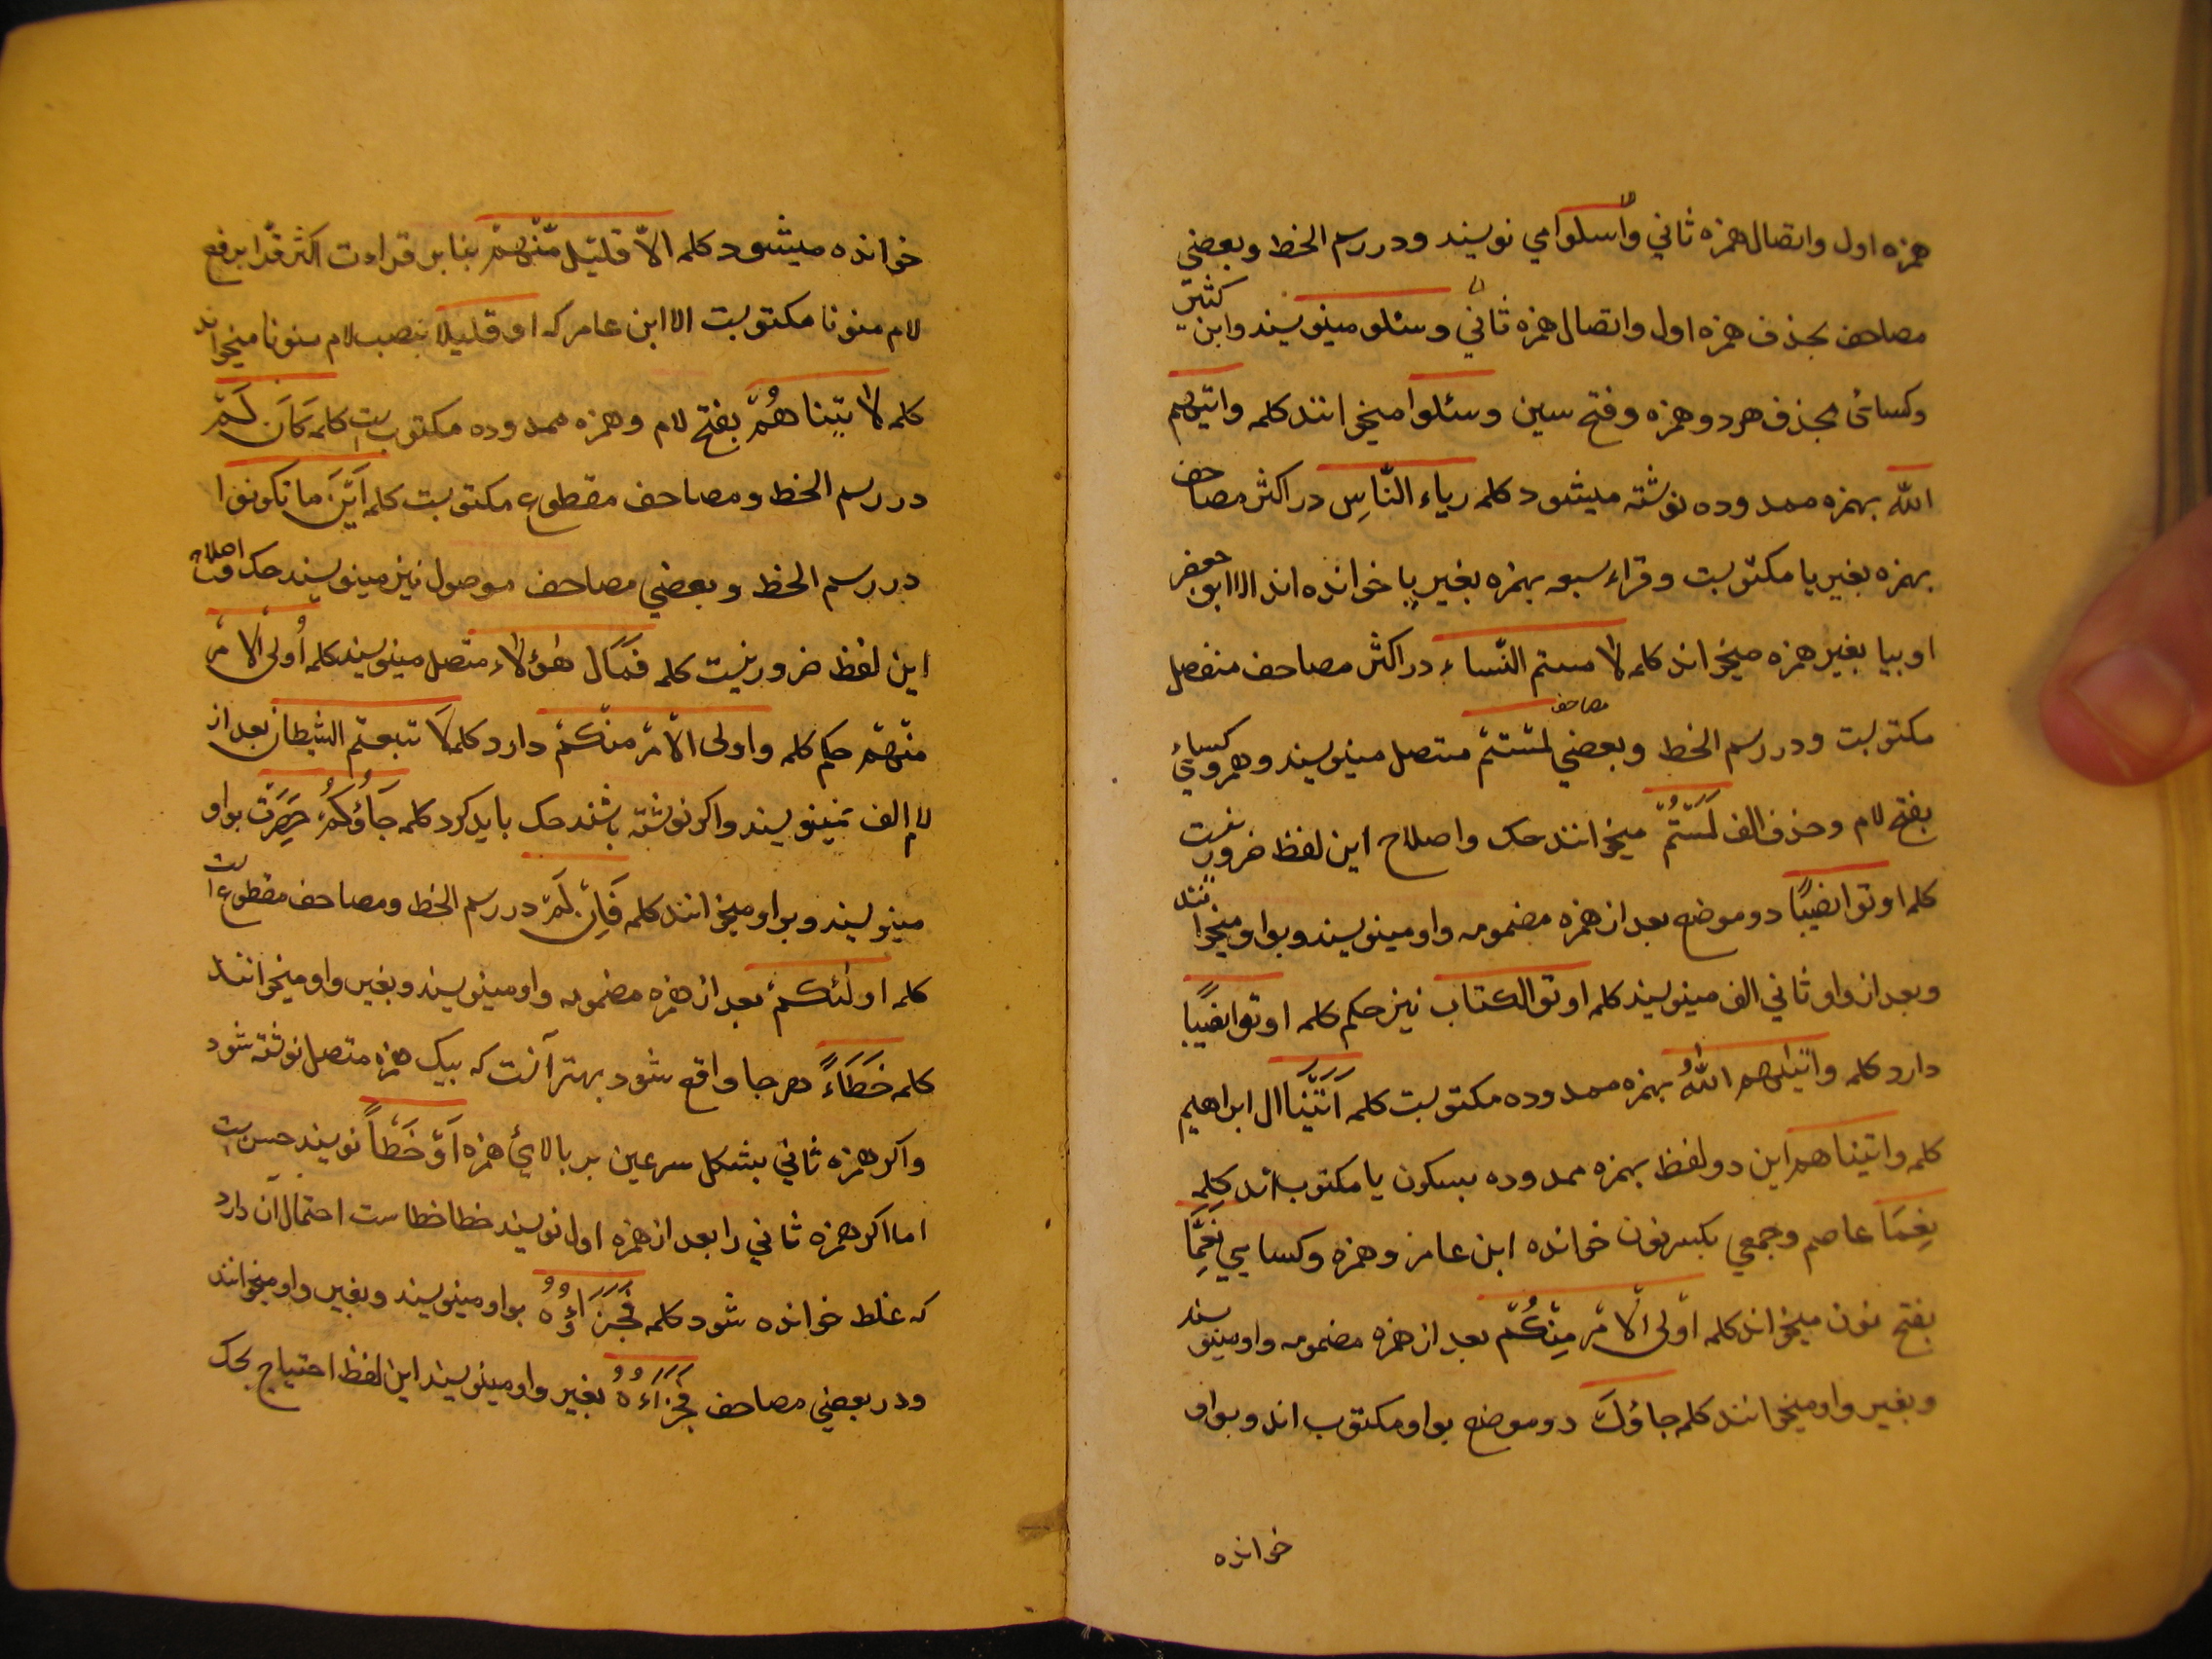 همزه اول واتصال همزه ثاني وأسلوا مي نويسند ودر رسم الخط وبعضي
مصاحف بحذف همزه اول واتصال همزه ثاني وسئلو مينويسند وابن كثير
وكسائى بحذف هر دو همزه وفتح سين وسئلوا ميخوانند كلمه واتيهم
الله بهمزه ممدوده نوشته ميشود كلمه رياء النّاسِ در اكثر مصاحف
بهمزه بغير يا مكتوبست وقراء سبعه بهمزه بغير يا خوانده اند الا ابو جعفر
او بيا بغير همزه ميخواند كلمه لامستم النّساء در اكثر مصاحف منفصل
مكتوبست ودر رسم الخط وبعضي مصاحف لمستم متصل مينويسند وحمزه وكسائي
بفتح لام وحذف الف لَمَستُم ميخوانند حك واصلاح اين لفظ ضرور نيست
كلمه اوتوا نصيبًا دو موضع بعد از همزه مضمومه واو مينويسند وبواو ميخوانند
وبعد از واو ثاني الف مينويسند كلمه اوتوا الكتاب نيز حكم كلمه اوتوا نصيبًا
دارد كلمه واتيهم اللهُ بهمزه ممدوده مكتوبست كلمه اَتَينَا ال ابراهيم
كلمه واتيناهم اين دو لفظ بهمزه ممدوده بسكون يا مكتوب اند كلمه
نِعِمَا عاصم وجمعي بكسر نون خوانده ابن عامر وحمزه وكسايي نَعِمَّا
بفتح نون ميخواند كلمه اولى الامر مِنكُم بعد از همزه مضمومه واو مينويسند
وبغير واو ميخوانند كلمه جاؤكَ دو موضع بواو مكتوب اند وبواو
خوانده
خوانده ميشود كلمه الّا قليل منهم بنا بر قراءت اكثر قرّا برفع
لام منونا مكتوبست الا ابن عامر كه او قليلا بنصب لام منونا ميخواند
كلمه لاتيناهُم بفتح لام وهمزه ممدوده مكتوبست كلمه كَاَن لَم
در رسم الخط ومصاحف مقطوع مكتوبست كلمه اَينَ ما تكونوا
در رسم الخط وبعضي مصاحف موصول نيز مينويسند حك واصلاح
اين لفظ ضرور نيست كلمه فمال هؤلاء متصل مينويسند كلمه اُولى الامر
منهم حكم كلمه واولى الامر منكم دارد كلمه لَاتبعتم الشيطان بعد از
لام الف نمينويسند واكر نوشته باشند حك بايد كرد كلمه جَاؤُكُم حَصِرَت بواو
مينويسند وبواو ميخوانند كلمه فَاِن لَم در رسم الخط ومصاحف مقطوع است
كلمه اولئكم بعد از همزه مضمومه واو مينويسند وبغير واو ميخوانند
كلمه خَطَاءً هر جا واقع شود بهتر آنست كه بيك همزه متصل نوشته شود
واكر همزه ثاني بشكل سر عين بر بالاي همزه اَو خَطَأً نويسند حسن است
اما اكر همزه ثاني را بعد از همزه اول نويسند خطا خطاست احتمال آن دارد
كه غلط خوانده شود كلمه فَجَزَاؤُهُ بواو مينويسند وبغير واو ميخوانند
ودر بعضي مصاحف فَجَزَاءُهُ بغير واو مينويسند اين لفظ احتياج بحك